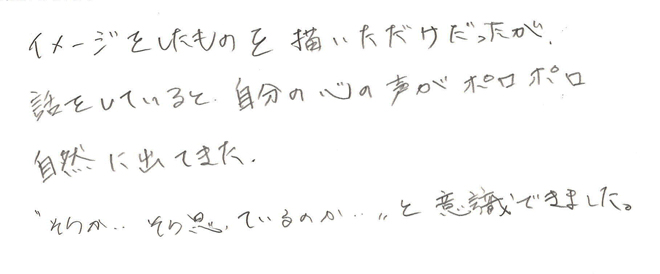 イメージをしたものを 描いただけだったが、
話をしていると、自分の心の声が ポロポロ
自然に出てきた。
〝そうか‥ そう思っているのか‥〟と 意識できました。